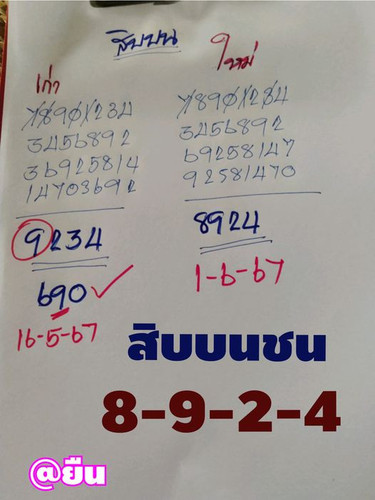 สิบบน
เก่า
ใหม่
3456892
36925814
14703692
9234
690
16-5-67
3456892
69258147
92581470
8924
1-6-67
สิบบนชน
8-9-2-4
@ยืน